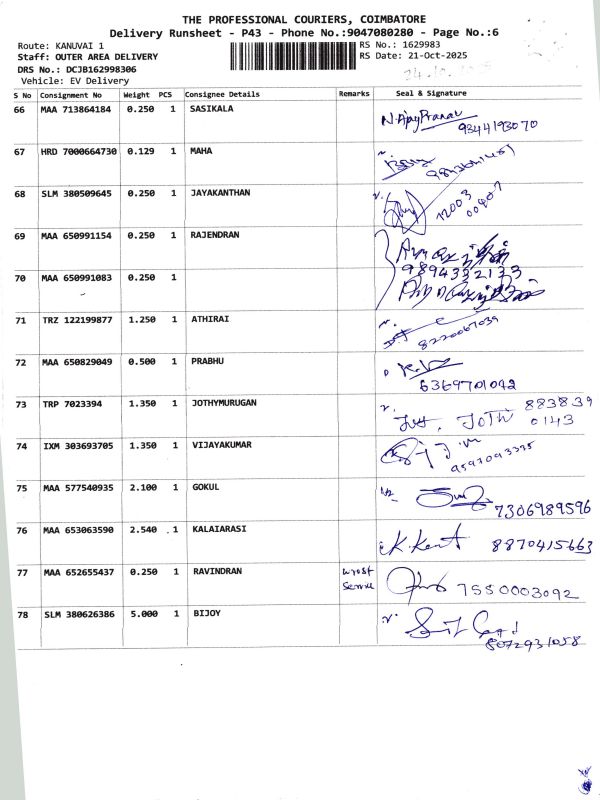 THE PROFESSIONAL COURIERS, COIMBATORE
Delivery Runsheet - P43 - Phone No.:9047080280 - Page No.:6
Route: KANUVAI 1
RS No.: 1629983
Staff: OUTER AREA DELIVERY
RS Date: 21-Oct-2025
DRS No.: DCJB162998306
Vehicle: EV Delivery
S No Consignment No Weight PCS Consignee Details Remarks Seal & Signature
66 MAA 713864184 0.250 1 SASIKALA N.AjayPranav
9344193070
67 HRD 7000664730 0.129 1 MAHA
68 SLM 380509645 0.250 1 JAYAKANTHAN
69 MAA 650991154 0.250 1 RAJENDRAN
9894332133
70 MAA 650991083 0.250 1
71 TRZ 122199877 1.250 1 ATHIRAI
8220067039
72 MAA 650829049 0.500 1 PRABHU
6369701042
73 TRP 7023394 1.350 1 JOTHYMURUGAN 883839
JOTH 0143
74 IXM 303693705 1.350 1 VIJAYAKUMAR
75 MAA 577540935 2.100 1 GOKUL
7306989596
76 MAA 653063590 2.540 1 KALAIARASI 8870415663
77 MAA 652655437 0.250 1 RAVINDRAN Wrost
Service 7550003092
78 SLM 380626386 5.000 1 BIJOY
8072931058